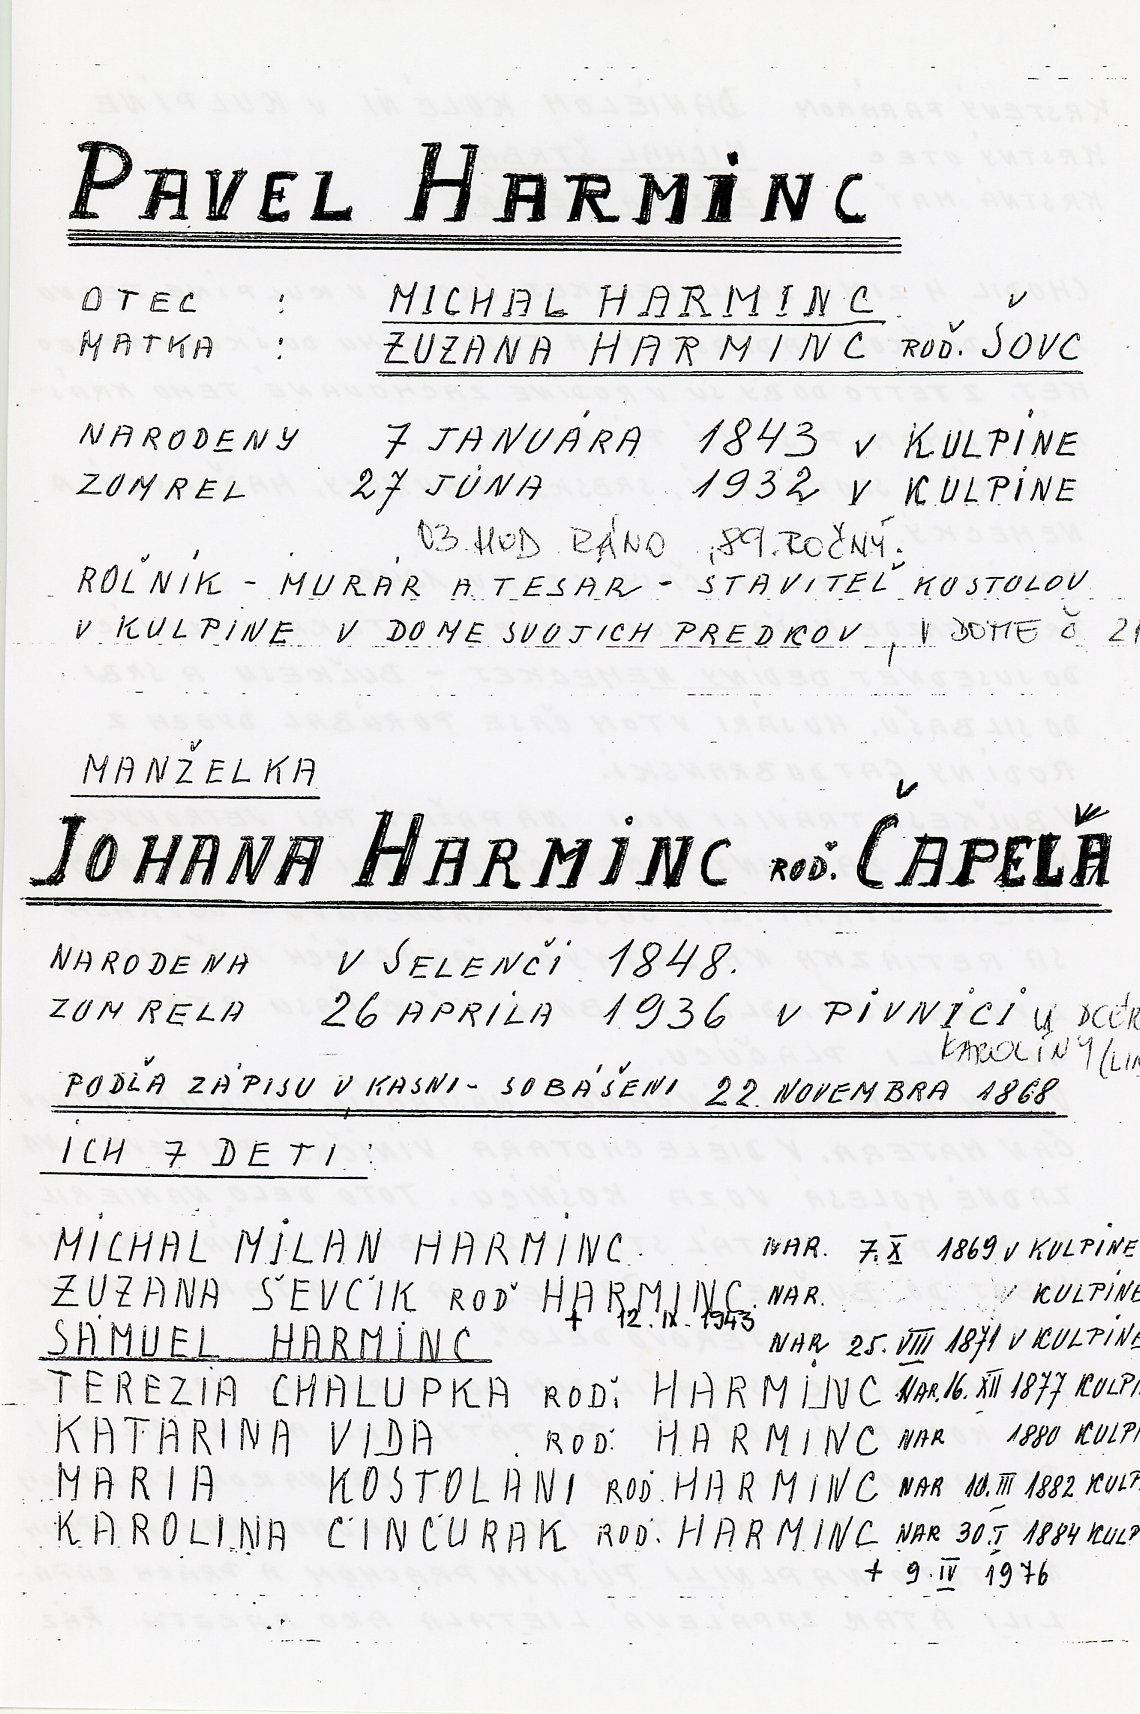 PAVEL HARMINC
OTEC : MICHAL HARMINC
MATKA : ZUZANA HARMINC ROĎ. ŠOVC
NARODENY 7 JANUÁRA 1843 V KULPÍNE
ZOMREL 27 JÚNA 1932 V KULPÍNE
03 HOD RÁNO, 89. ROČNÝ.
ROĽNÍK - MURÁR A TESAR - STAVITEĽ KOSTOLOV
V KULPÍNE V DOME SVOJICH PREDKOV, V DOME Č
MANŽELKA
JOHANA HARMINC ROĎ. ČAPEĽA
NARODENA V SELENČI 1848.
ZOMRELA 26 APRÍLA 1936 V PIVNICI U DCÉR
KAROLÍNY
PODĽA ZÁPISU V KASNI - SOBÁŠENI 22 NOVEMBRA 1868
ICH 7 DETI:
MICHAL MILAN HARMINC. NAR. 7. X 1869 V KULPÍNE
ZUZANA ŠEVČIK ROĎ HARMINC. NAR. V KULPÍNE
+ 12. IX. 1943
SAMUEL HARMINC NAR 25. VIII 1871 V KULPÍNE
TEREZIA CHALUPKA ROĎ. HARMINC NAR. 16. XII 1877 KULPI
KATARINA VIDA ROĎ. HARMINC NAR 1880 KULPI
MARIA KOSTOLANI ROĎ. HARMINC NAR 10. III 1882 KULP
KAROLINA ČINČURAK ROĎ. HARMINC NAR 30. I 1884 KULP
+ 9. IV 1976